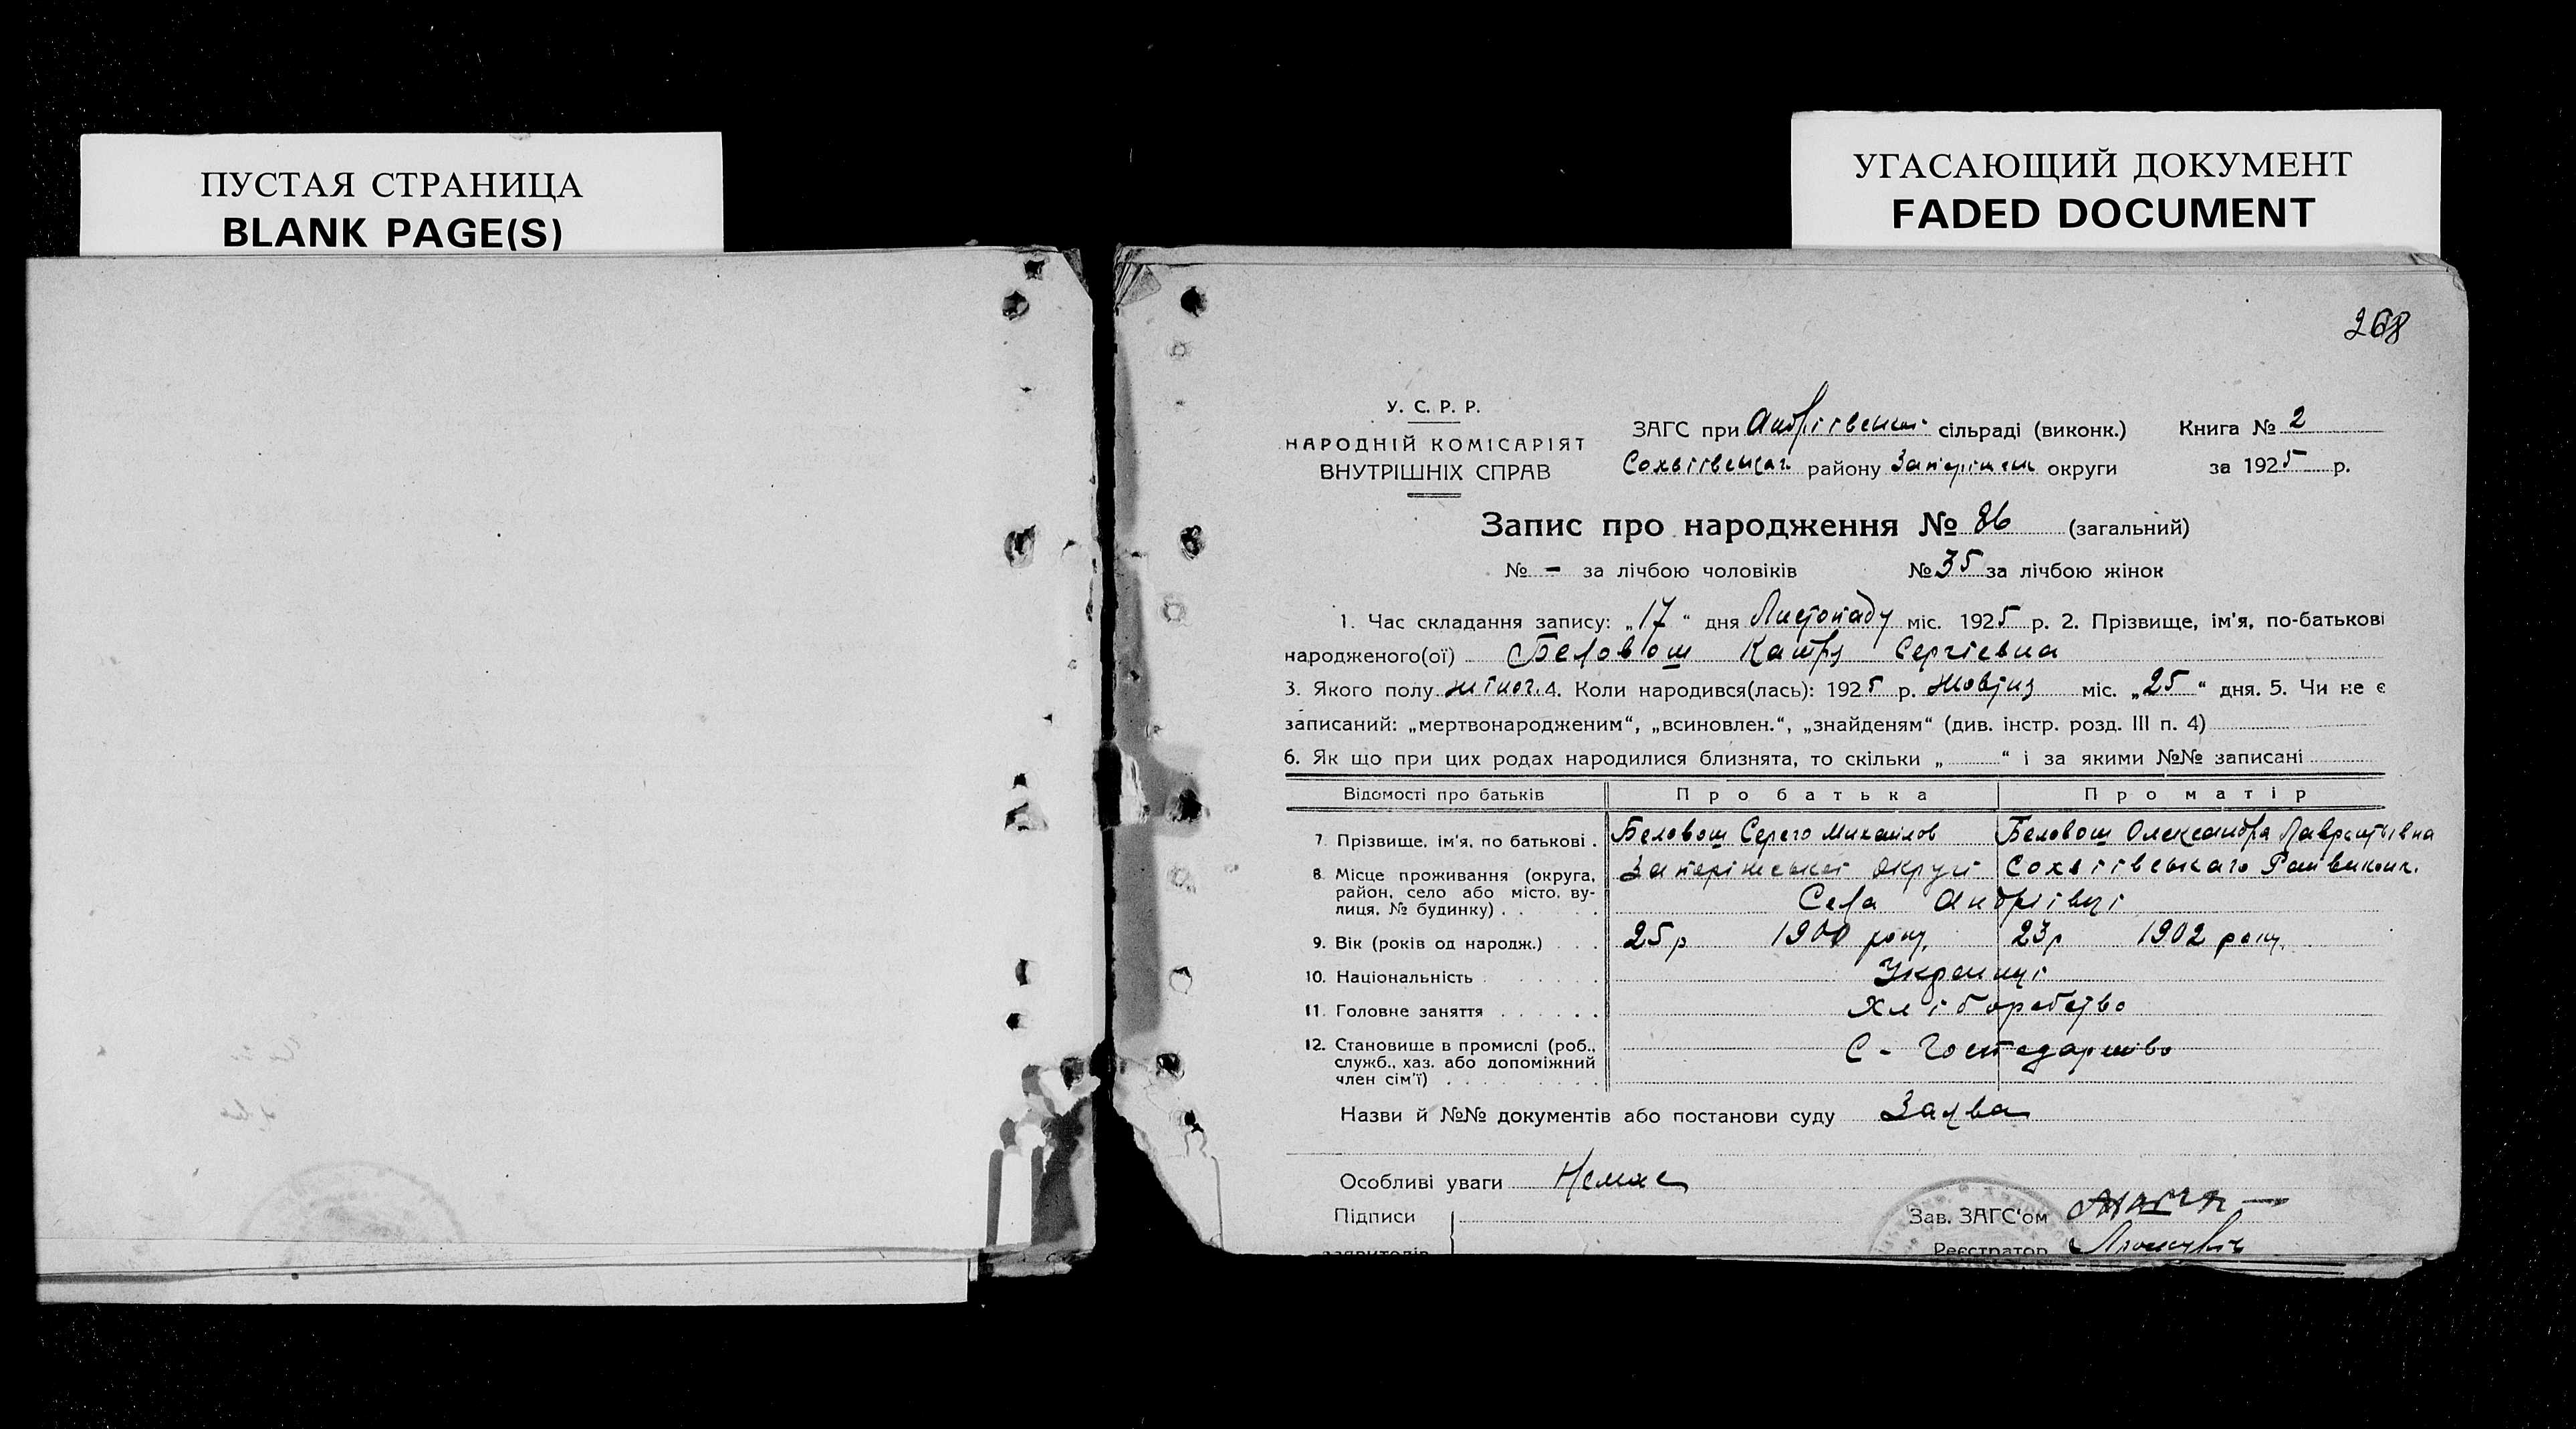 ПУСТАЯ СТРАНИЦА
BLANK PAGE(S)
УГАСАЮЩИЙ ДОКУМЕНТ
FADED DOCUMENT
268
У. С. Р. Р.
НАРОДНІЙ КОМІСАРІЯТ
ВНУТРІШНІХ СПРАВ
ЗАГС при Андріївськ. сільраді (виконк.) Книга № 2
Сохвіївськаг району Запоріжськ округи за 1925 р.
Запис про народження № 86 (загальний)
№ – за лічбою чоловіків № 35 за лічбою жінок
1. Час складання запису: „17“ дня Листопаду міс. 1925 р. 2. Прізвище, ім'я, по-батькові
народженого(ої) Беловош Катря Сергіевна
3. Якого полу жіноч. 4. Коли народився(лась): 1925 р. Жовтня міс. „25“ дня. 5. Чи не є
записаний: „мертвонародженим“, „всиновлен.“, „знайденям“ (див. інстр. розд. III п. 4)
6. Як що при цих родах народилися близнята, то скільки „ “ і за якими №№ записані
Відомості про батьків Про батька Про матір
7. Прізвище, ім'я, по батькові . Беловош Серего Михайлов Беловош Олександра Лаврентьівна
8. Місце проживання (округа, район, село або місто, вулиця, № будинку) . . . Запоріжської округі Сохвіівськаго Райвиконк.
Села Андріівці
9. Вік (років од народж.) . . . 25р 1900 року. 23р 1902 року.
10. Національність . . . . . . Украинці
11. Головне заняття . . . . . . Хліборобство
12. Становище в промислі (роб., служб., хаз. або допоміжний член сім'ї) . . . . . . . . . С - Господарство
Назви й №№ документів або постанови суду Заява
Особливі уваги Немає
Підписи Зав. ЗАГС'ом
заявителів Реєстратор